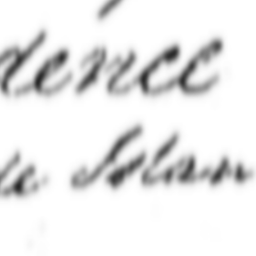 dence
de Islan